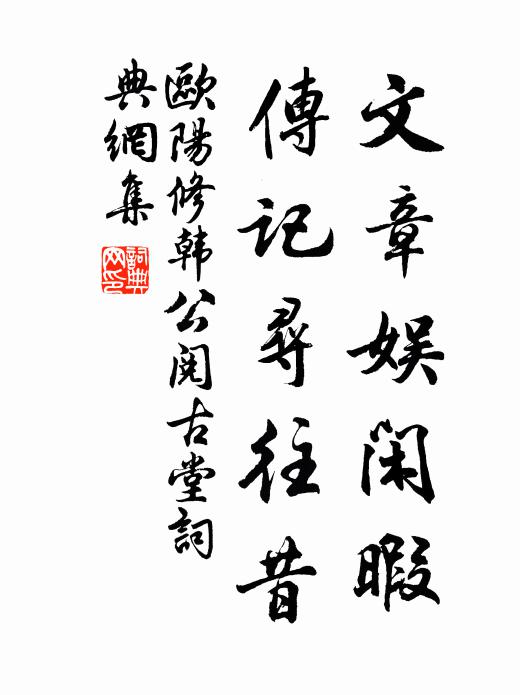 文章娱閑暇
傳記尋往昔
歐陽修韩公阅古堂詞
典網集
詞典网印